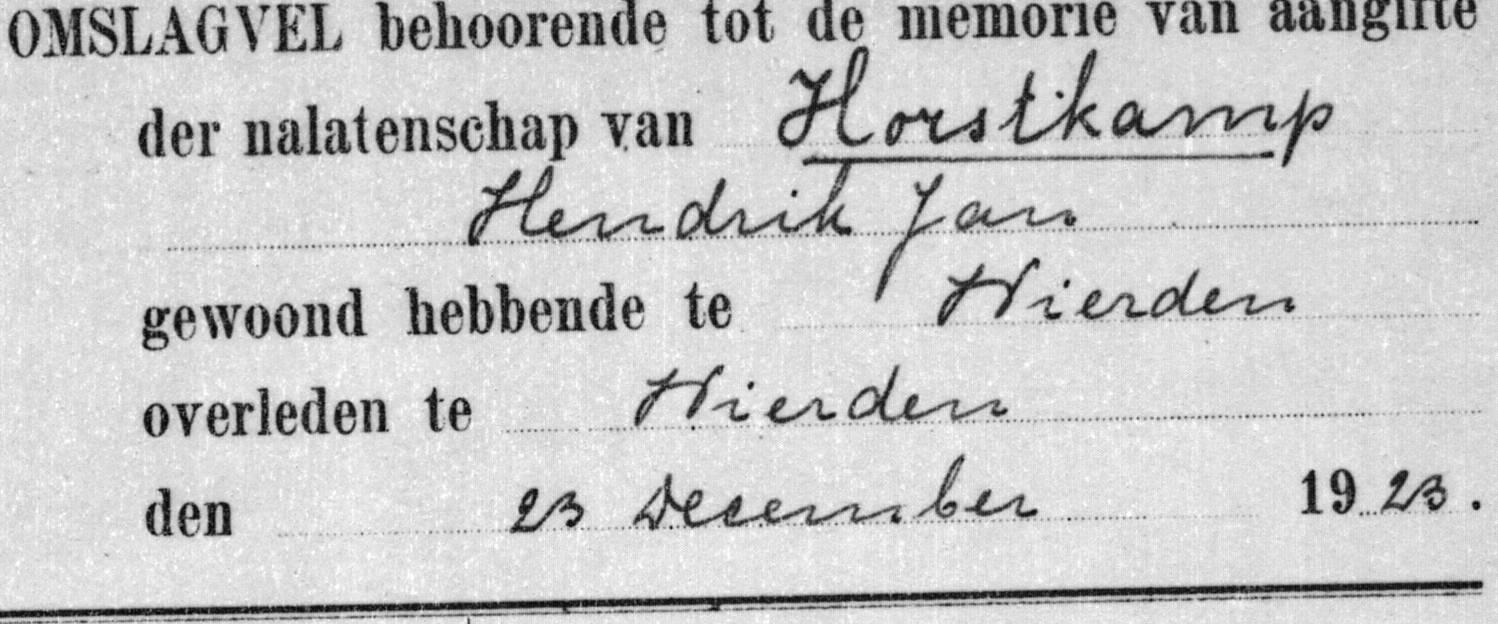 OMSLAGVEL behoorende tot de memorie van aangifte
der nalatenschap van Horstkamp
Hendrik Jan
gewoond hebbende te Wierden
overleden te Wierden
den 23 December 1923.